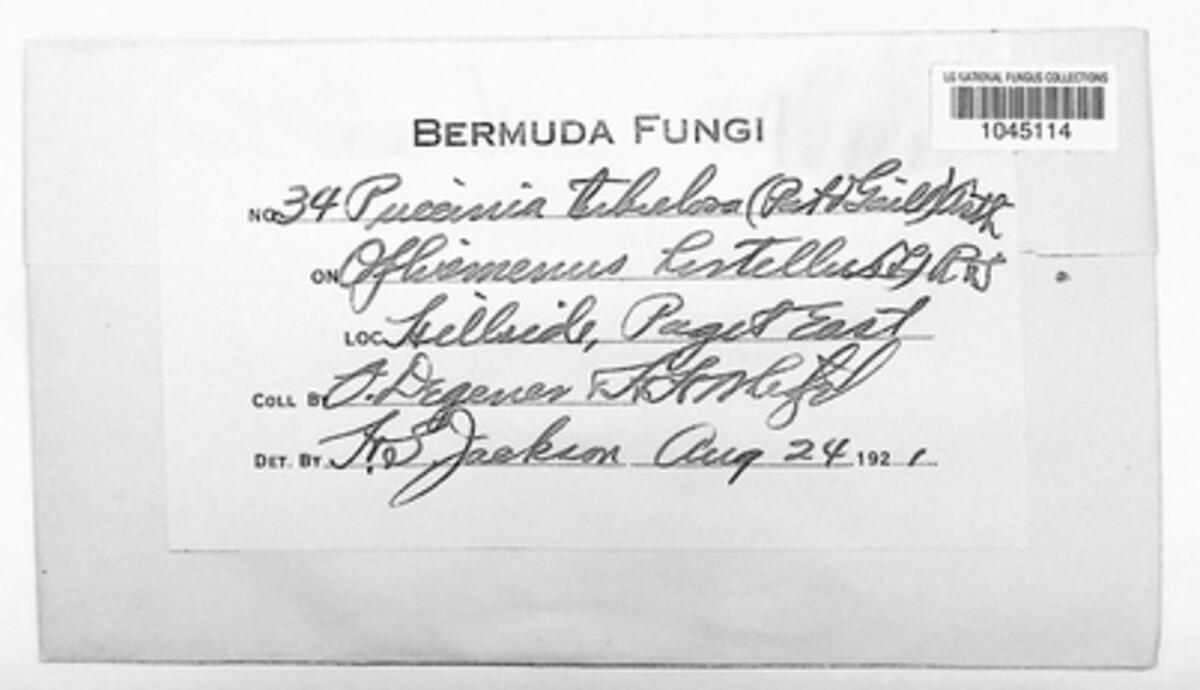 US NATIONAL FUNGUS COLLECTIONS
1045114
BERMUDA FUNGI
NO. 34 Puccinia tubulosa (Pat & Gaill) Arth
ON Oplismenus hirtellus (L) R & S
LOC Hillside, Paget East
COLL BY O. Degener
DET. BY H.S. Jackson Aug 24 1921